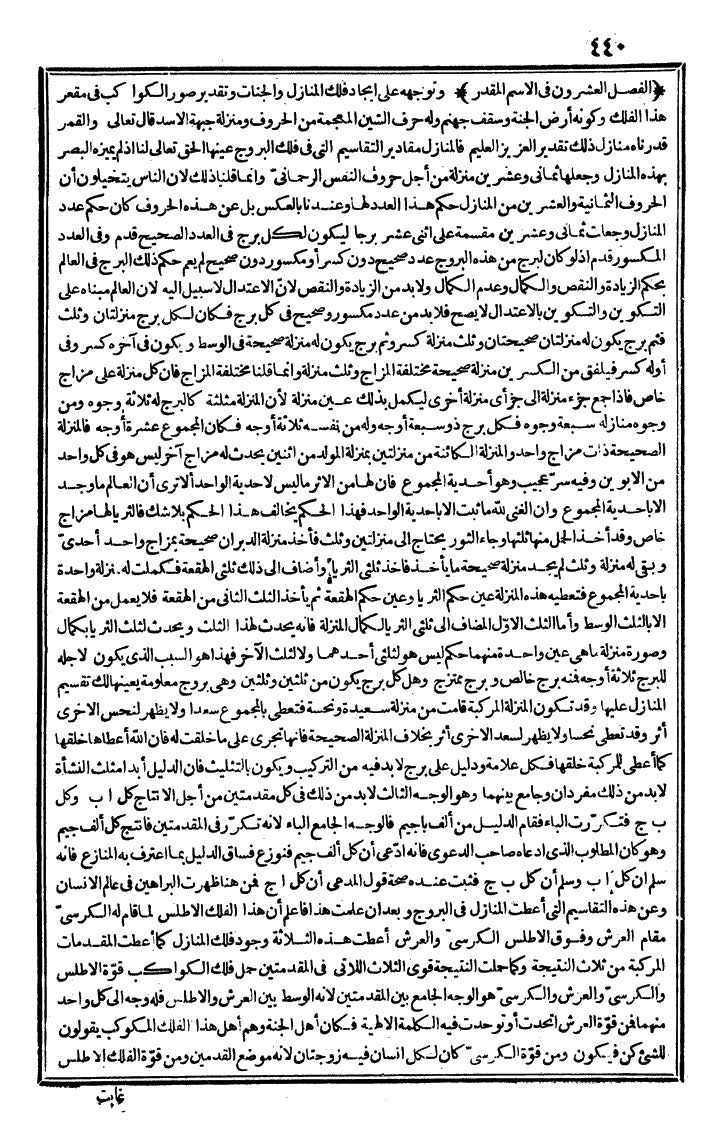 ٤٤٠
﴿الفصل العشرون فى الاسم المقدر﴾ وتوجهه على ايجاد فلك المنازل والجنات وتقدير صور الكواكب فى مقعر
هذا الفلك وكونه أرض الجنة وسقف جهنم وله حرف الشين المعجمة من الحروف ومنزلة جبهة الاسد قال تعالى والقمر
قدرناه منازل ذلك تقدير العزيز العليم فالمنازل مقادير التقاسيم التى فى فلك البروج عينها الحق تعالى لنا اذ لم يميزه البصر
بهذه المنازل وجعلها ثمانى وعشرين منزلة من أجل حروف النفس الرحمانىّ وانما قلنا ذلك لان الناس يتخيلون أن
الحروف الثمانية والعشرين من المنازل حكم هذا العدد لها وعندنا بالعكس بل عن هذه الحروف كان حكم عدد
المنازل وجعلت ثمانى وعشرين مقسمة على اثنى عشر برجا ليكون لكل برج فى العدد الصحيح قدم وفى العدد
المكسور قدم اذ لو كان لبرج من هذه البروج عدد صحيح دون كسر أو مكسور دون صحيح لم يعم حكم ذلك البرج فى العالم
بحكم الزيادة والنقص والكمال وعدم الكمال ولا بد من الزيادة والنقص لانّ الاعتدال لا سبيل اليه لان العالم مبناه على
التكوين والتكوين بالاعتدال لا يصح فلا بد من عدد مكسور وصحيح فى كل برج فكان لكل برج منزلتان وثلث
فثم برج يكون له منزلتان صحيحتان وثلث منزلة كسر وثم برج يكون له منزلة صحيحة فى الوسط ويكون فى آخره كسر وفى
أوله كسر فيلفق من الكسرين منزلة صحيحة مختلفة المزاج وثلث منزلة وانما قلنا مختلفة المزاج فان كل منزلة على مزاج
خاص فاذا جمع جزء منزلة الى جزء أى منزلة أخرى ليكمل بذلك عين منزلة لأن المنزلة مثلثة كالبرج له ثلاثة وجوه ومن
وجوه منازله سبعة وجوه فكل برج ذو سبعة أوجه وله من نفسه ثلاثة أوجه فكان المجموع عشرة أوجه فالمنزلة
الصحيحة ذات مزاج واحد والمنزلة الكائنة من منزلتين بمنزلة المولد من اثنين يحدث له مزاج آخر ليس هو فى كل واحد
من الابوين وفيه سرّ عجيب وهو أحدية المجموع فان لها من الاثر ما ليس لاحدية الواحد ألا ترى أن العالم ما وجد
الا باحدية المجموع وان الغنى لله ما ثبت الا باحدية الواحد فهذا الحكم يخالف هذا الحكم بلا شك فالثريا لها مزاج
خاص وقد أخذ الحمل منها ثلثها وجاء الثور يحتاج الى منزلتين وثلث فأخذ منزلة الدبران صحيحة بمزاج واحد أحدىّ
وبقى له منزلة وثلث لم يجد منزلة صحيحة ما يأخذ فاخذ ثلثى الثريا وأضاف الى ذلك ثلثى الهقعة فكملت له منزلة واحدة
باحدية المجموع فتعطيه هذه المنزلة عين حكم الثريا وعين حكم الهقعة ثم يأخذ الثلث الثانى من الهقعة فلا يعمل من الهقعة
الا بالثلث الوسط وأما الثلث الاوّل المضاف الى ثلثى الثريا لكمال المنزلة فانه يحدث لهذا الثلث ويحدث لثلث الثريا بكمال
وصورة منزلة ما هى عين واحدة منهما حكم ليس هو لثلثى أحدهما ولا لثلث الآخر فهذا هو السبب الذى يكون لاجله
للبرج ثلاثة أوجه فمنه برج خالص وبرج ممتزج وهل كل برج يكون من ثلثين وثلثين وهى بروج معلومة يعينها لك تقسيم
المنازل عليها وقد تكون المنزلة المركبة قامت من منزلة سعيدة ونحسة فتعطى بالمجموع سعدا ولا يظهر لنحس الاخرى
أثر وقد تعطى نحسا ولا يظهر لسعد الاخرى أثر بخلاف المنزلة الصحيحة فانها تجرى على ما خلقت له فان الله أعطاها خلقها
كما أعطى للمركبة خلقها فكل علامة ودليل على برج لا بد فيه من التركيب ويكون بالتثليث فان الدليل أبدا مثلث النشأة
لا بد من ذلك مفردان وجامع بينهما وهو الوجه الثالث لا بد من ذلك فى كل مقدمتين من أجل الانتاج كل ا ب وكل
ب ج فتكررت الباء فقام الدليل من ألف با جيم فالوجه الجامع الباء لانه تكرّر فى المقدمتين فانتج كل ألف جيم
وهو كان المطلوب الذى ادعاه صاحب الدعوى فانه ادّعى أن كل ألف جيم فنوزع فساق الدليل بما اعترف به المنازع فانه
سلم ان كل ا ب وسلم أن كل ب ج فثبت عنده صحة قول المدعى أن كل ا ج فمن هنا ظهرت البراهين فى عالم الانسان
وعن هذه التقاسيم التى أعطت المنازل فى البروج وبعد ان علمت هذا فاعلم أن هذا الفلك الاطلس لما قام له الكرسىّ
مقام العرش وفوق الاطلس الكرسىّ والعرش أعطت هذه الثلاثة وجود فلك المنازل كما أعطت المقدمات
المركبة من ثلاث النتيجة وكما حملت النتيجة قوى الثلاث اللاتى فى المقدمتين حمل فلك الكواكب قوّة الاطلس
والكرسىّ والعرش والكرسىّ هو الوجه الجامع بين المقدمتين لانه الوسط بين العرش والاطلس فله وجه الى كل واحد
منهما فمن قوّة العرش اتحدت أو توحدت فيه الكلمة الالهية فكان أهل الجنة وهم أهل هذا الفلك المكوكب يقولون
للشئ كن فيكون ومن قوّة الكرسىّ كان لكل انسان فيه زوجتان لانه موضع القدمين ومن قوّة الفلك الاطلس
غابت